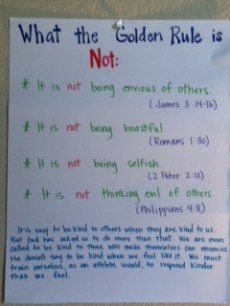 What the Golden Rule is
Not:
* It is not being envious of others.
(James 3:14-16)
* It is not being boastful
(Romans 1:30)
* It is not being selfish.
(2 Peter 2:10)
* It is not thinking evil of others.
(Philippians 4:8)
It is easy to be kind to others when they are kind to us.
But God has asked us to do more than that. We are even
called to be kind to those who make themselves our enemies.
He doesn't say to be kind when we feel like it. We must
train ourselves, as an athlete would, to respond kinder
than we feel.